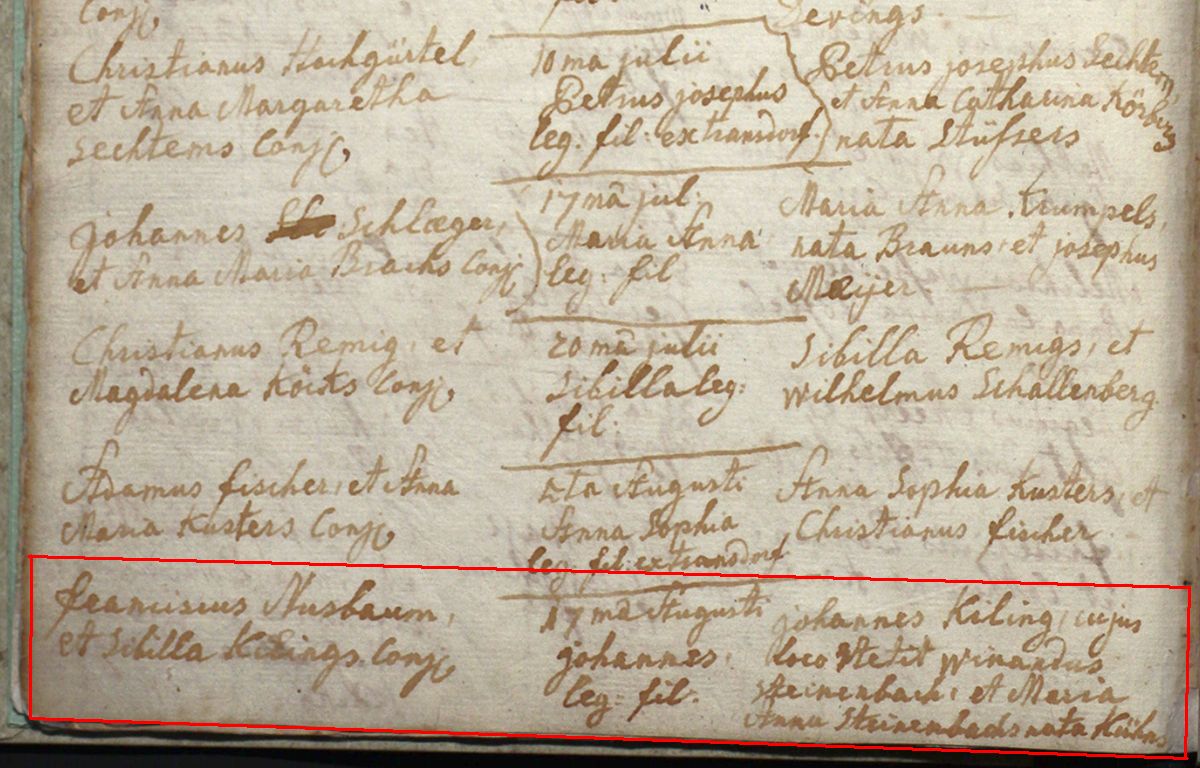 Conj:
Devings.
Christianus Hochgürtel,
et Anna Margaretha
Sechtems Conj:
10ma julii
Petrus josephus
leg: fil: ex transdorf.
Petrus josephus Sechtem,
et Anna Catharina Körbergs
nata Stüssers
johannes Schlæger,
et Anna Maria Brachs Conj:
17mã jul:
Maria Anna
leg: fil
Maria Anna Krumpels,
nata Brauns, et josephus
Meijer
Christianus Remig, et
Magdalena Körts Conj:
20mã julii
Sibilla leg:
fil:
Sibilla Remigs, et
wilhelmus Schallenberg
Adamus fischer, et Anna
Maria Kusters Conj:
4ta Augusti
Anna Sophia
leg: fil: ex transdorf
Anna Sophia Kusters, et
Christianus fischer
franciscus Nusbaum,
et Sibilla Kilings Conj:
17mã Augusti
johannes,
leg: fil.
johannes Kiling, cujus
loco stetit winandus
Steinenbach, et Maria
Anna Steinenbachs nata Kühns